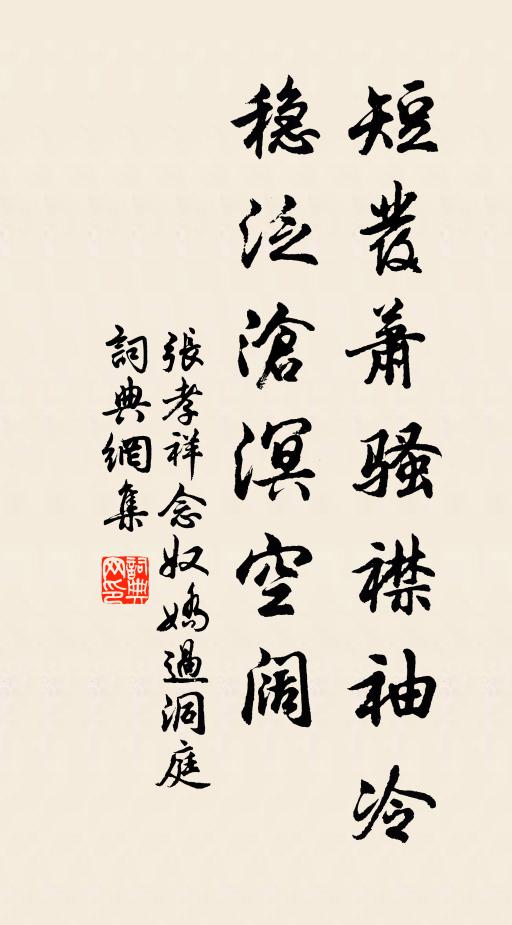 短發蕭骚襟袖冷
穏泛滄溟空阔
張孝祥念奴嬌過洞庭
詞典網集
詞典网印